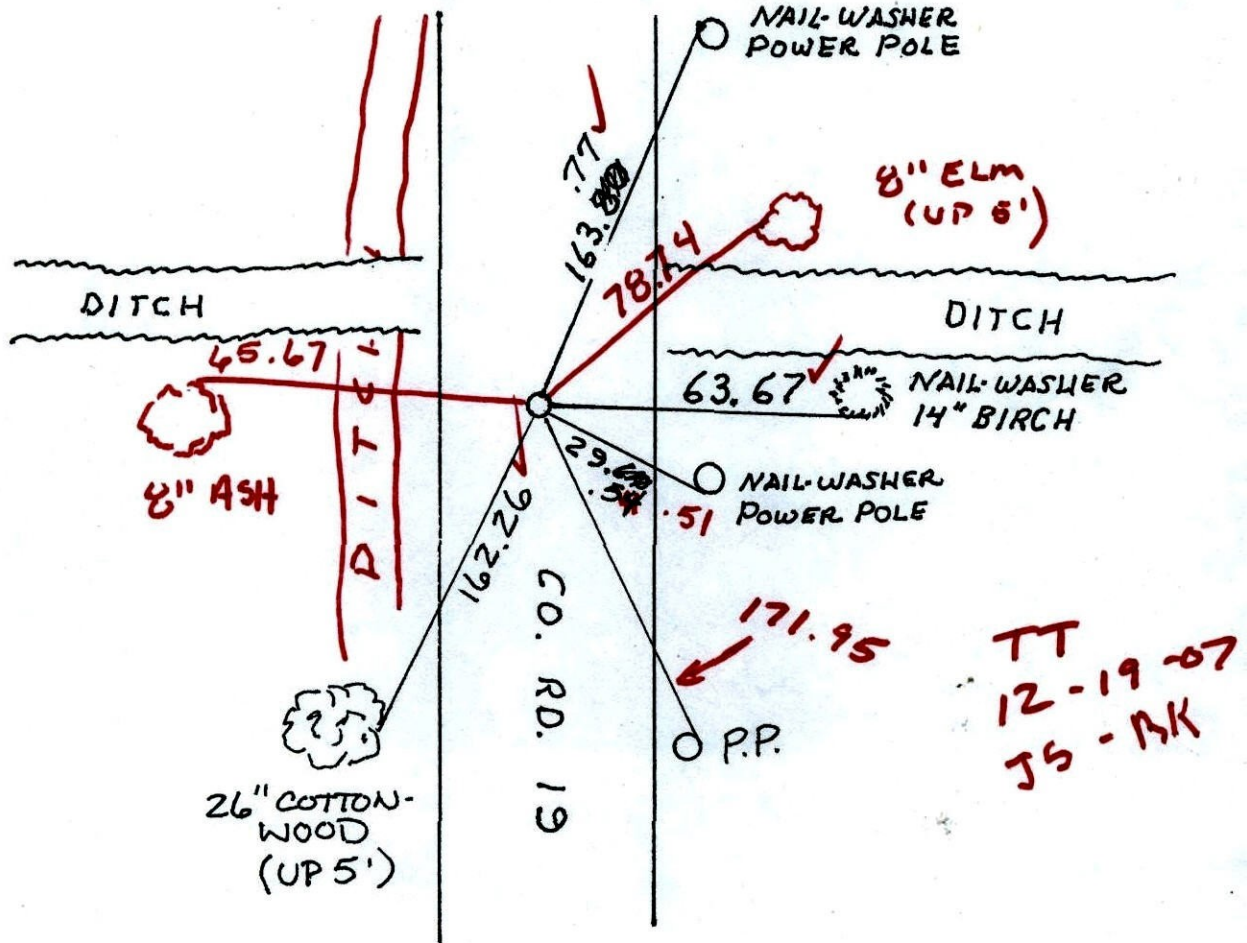 NAIL-WASHER
POWER POLE
.77
163.
8" ELM
(UP 5')
78.74
DITCH
DITCH
65.67
63.67
NAIL-WASHER
14" BIRCH
8" ASH
DITCH
29.
.51
NAIL-WASHER
POWER POLE
162.26
CO. RD. 19
171.95
P.P.
26" COTTON-
WOOD
(UP 5')
TT
12-19-07
JS - BK